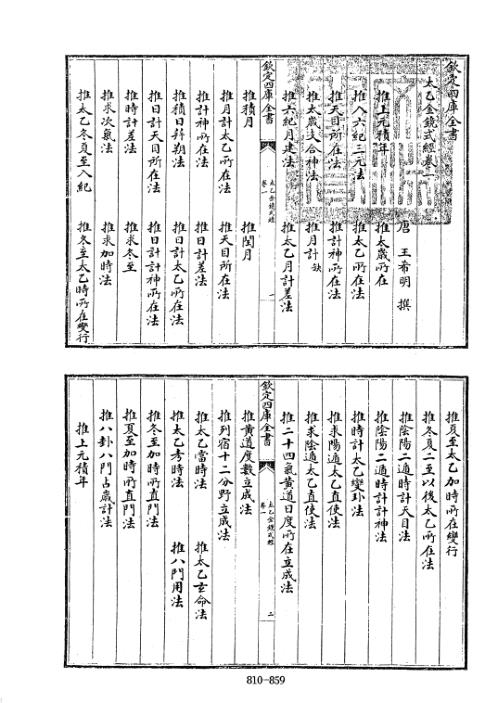 欽定四庫全書
太乙金鏡式經卷一
唐 王希明 撰
推上元積年 推太歲所在
推入六紀三元法 推太乙所在法
推天目所在法 推計神所在法
推太歲支合神法 推月計 缺
推六紀月建法 推太乙月計差法
欽定四庫全書
太乙金鏡式經
卷一
一
推積月 推閏月
推月計太乙所在法 推天目所在法
推計神所在法 推日計差法
推積日幷朔法 推日計太乙所在法
推日計天目所在法 推日計計神所在法
推時計差法 推求冬至
推求次氣法 推求加時法
推太乙冬夏至入紀 推冬至太乙時所在變行
推夏至太乙加時所在變行
推冬夏二至以後太乙所在法
推陰陽二遁時計天目法
推陰陽二遁時計計神法
推時計太乙變卦法
推求陽遁太乙直使法
推求陰遁太乙直使法
推二十四氣黃道日度所在立成法
欽定四庫全書
太乙金鏡式經
卷一
二
推黃道度數立成法
推列宿十二分野立成法
推太乙當時法 推太乙主命法
推太乙考時法 推八門用法
推冬至加時所直門法
推夏至加時所直門法
推八卦八門占歲計法
推上元積年
810-859